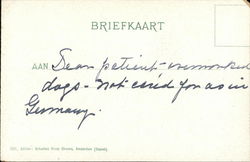 BRIEFKAART
AAN Dear patient - overworked
dogs - not cared for as in
Germany.